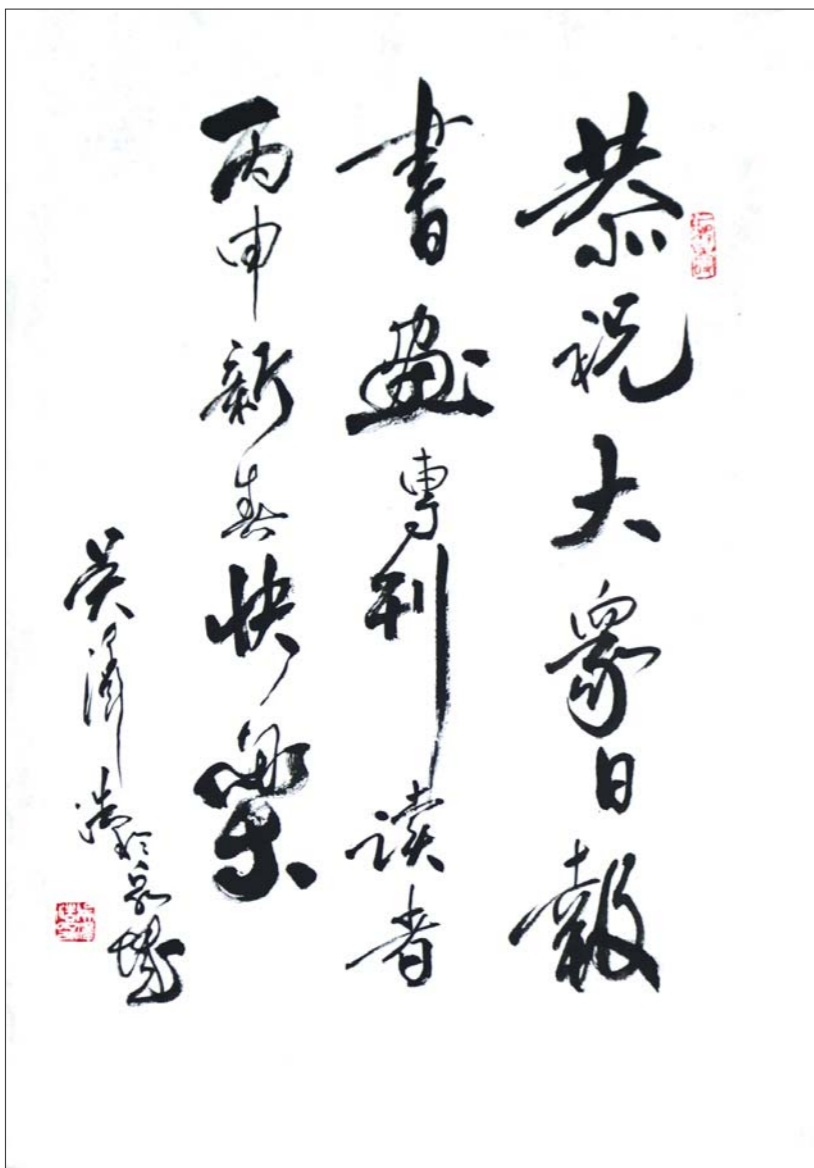 恭祝大衆日報
書畫專刊读者
丙申新春快樂
吴泽浩於泉城